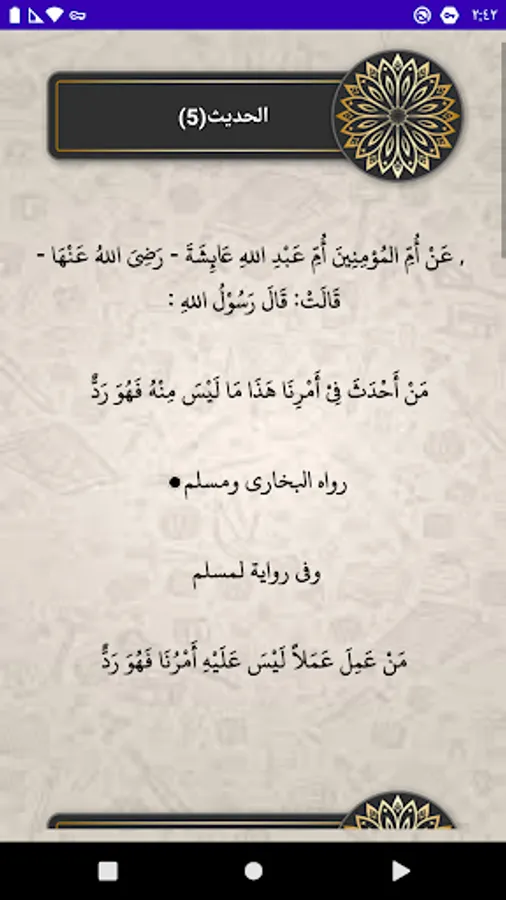 ٢:٤٢
الحديث(5)
, عَنْ أُمِّ المُؤمِنِينَ أُمِّ عَبْدِ اللهِ عَايِشَةَ - رَضِىَ اللهُ عَنْهَا -
قَالَتْ: قَالَ رَسُوْلُ اللهِ :
مَنْ أَحْدَثَ فِىْ أَمْرِنَا هَذَا مَا لَيْسَ مِنْهُ فَهُوَ رَدٌّ
رواه البخارى ومسلم●
وفى رواية لمسلم
مَنْ عَمِلَ عَمَلاً لَيْسَ عَلَيْهِ أَمْرُنَا فَهُوَ رَدٌّ